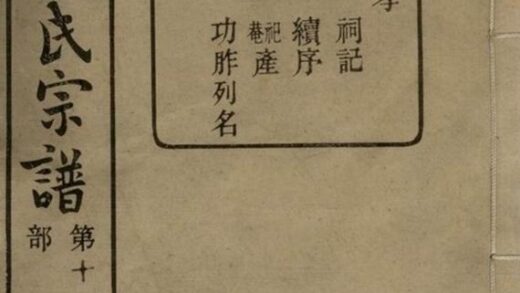 祠記
續序
祀菴產
功胙列名
氏宗譜
第十
部